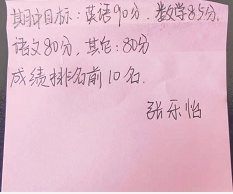 期中目标:英语90分.数学85分.
语文80分,其它:80分
成绩排名前10名.
张乐怡